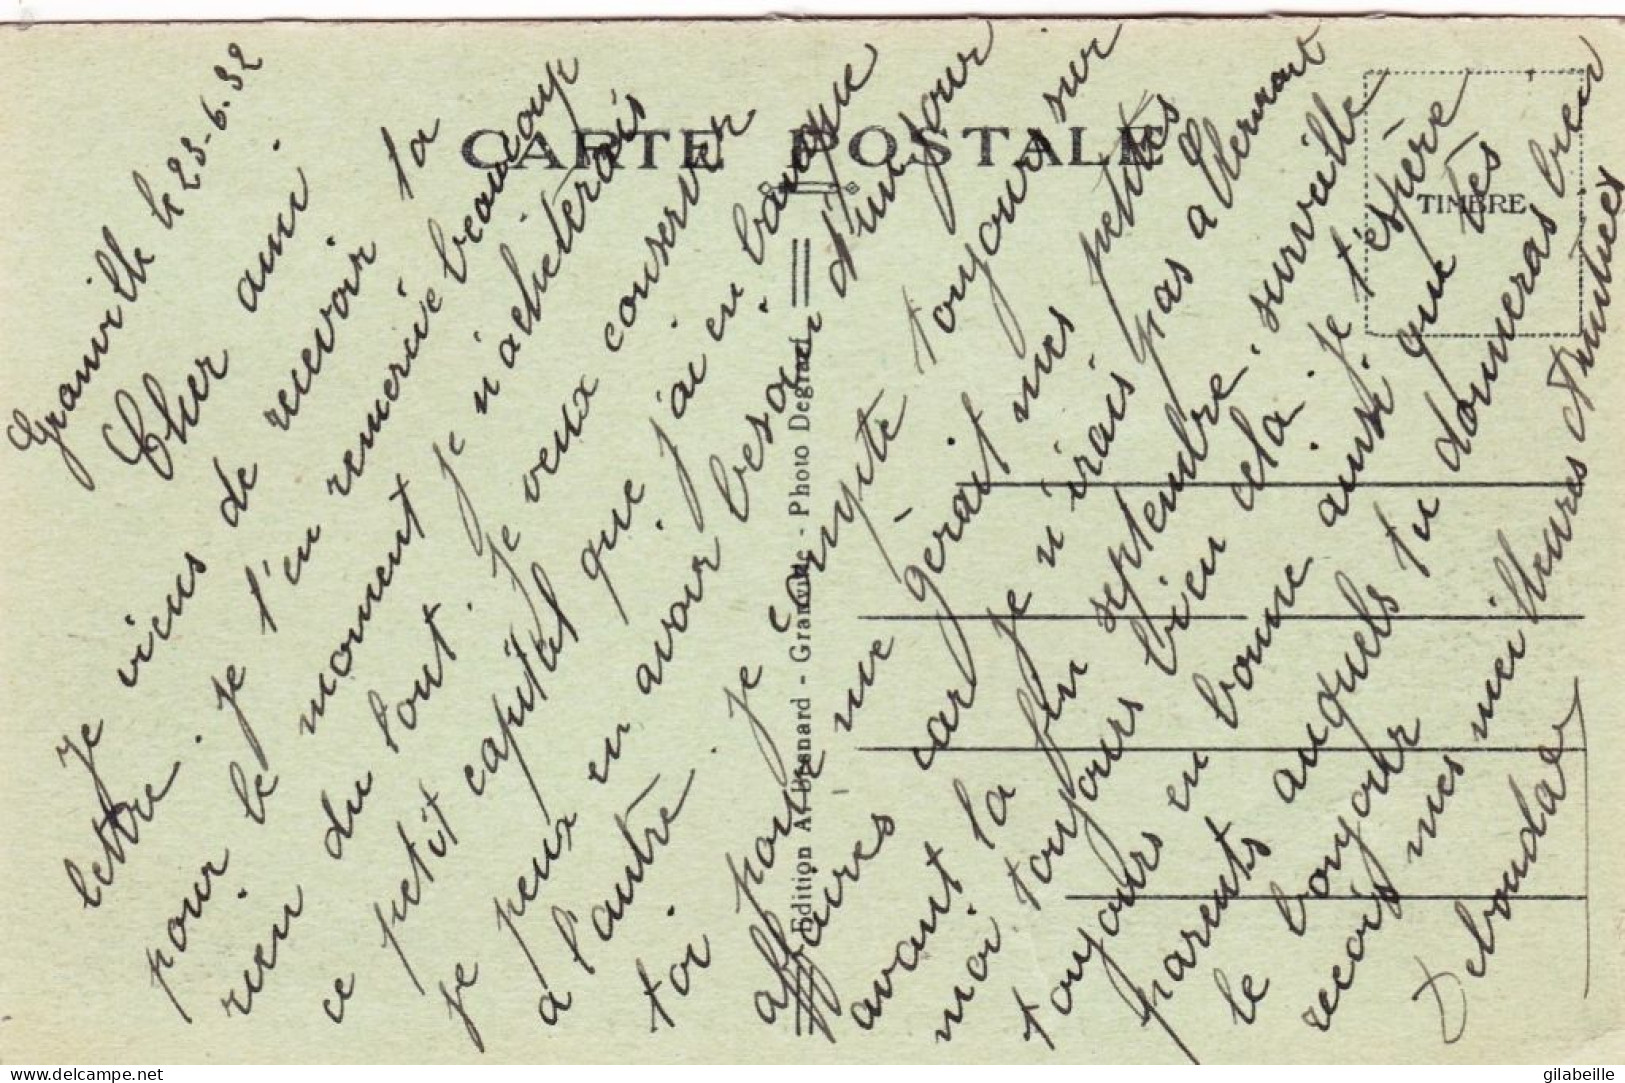 CARTE POSTALE
TIMBRE
Edition A. Besnard - Granville - Photo Degrard
Granville le 23-6-32
Cher ami.
Je viens de recevoir ta
lettre. je t'en remercie beaucoup
pour le moment je n'achèterais
rien du tout. Je veux conserver
ce petit capital que j'ai en banque
je peux en avoir besoin d'un jour
a l'autre. je compte toujours sur
toi. pour me gérait mes petites
affaires car je n'irais pas a Clermont
avant la fin septembre. surveille
moi toujours bien cela. je t'espère
toujours en bonne ainsi que tes
parents auquels tu donneras bien
le bonjour
recois mes meilleures Amitiés
delcampe.net
gilabeille